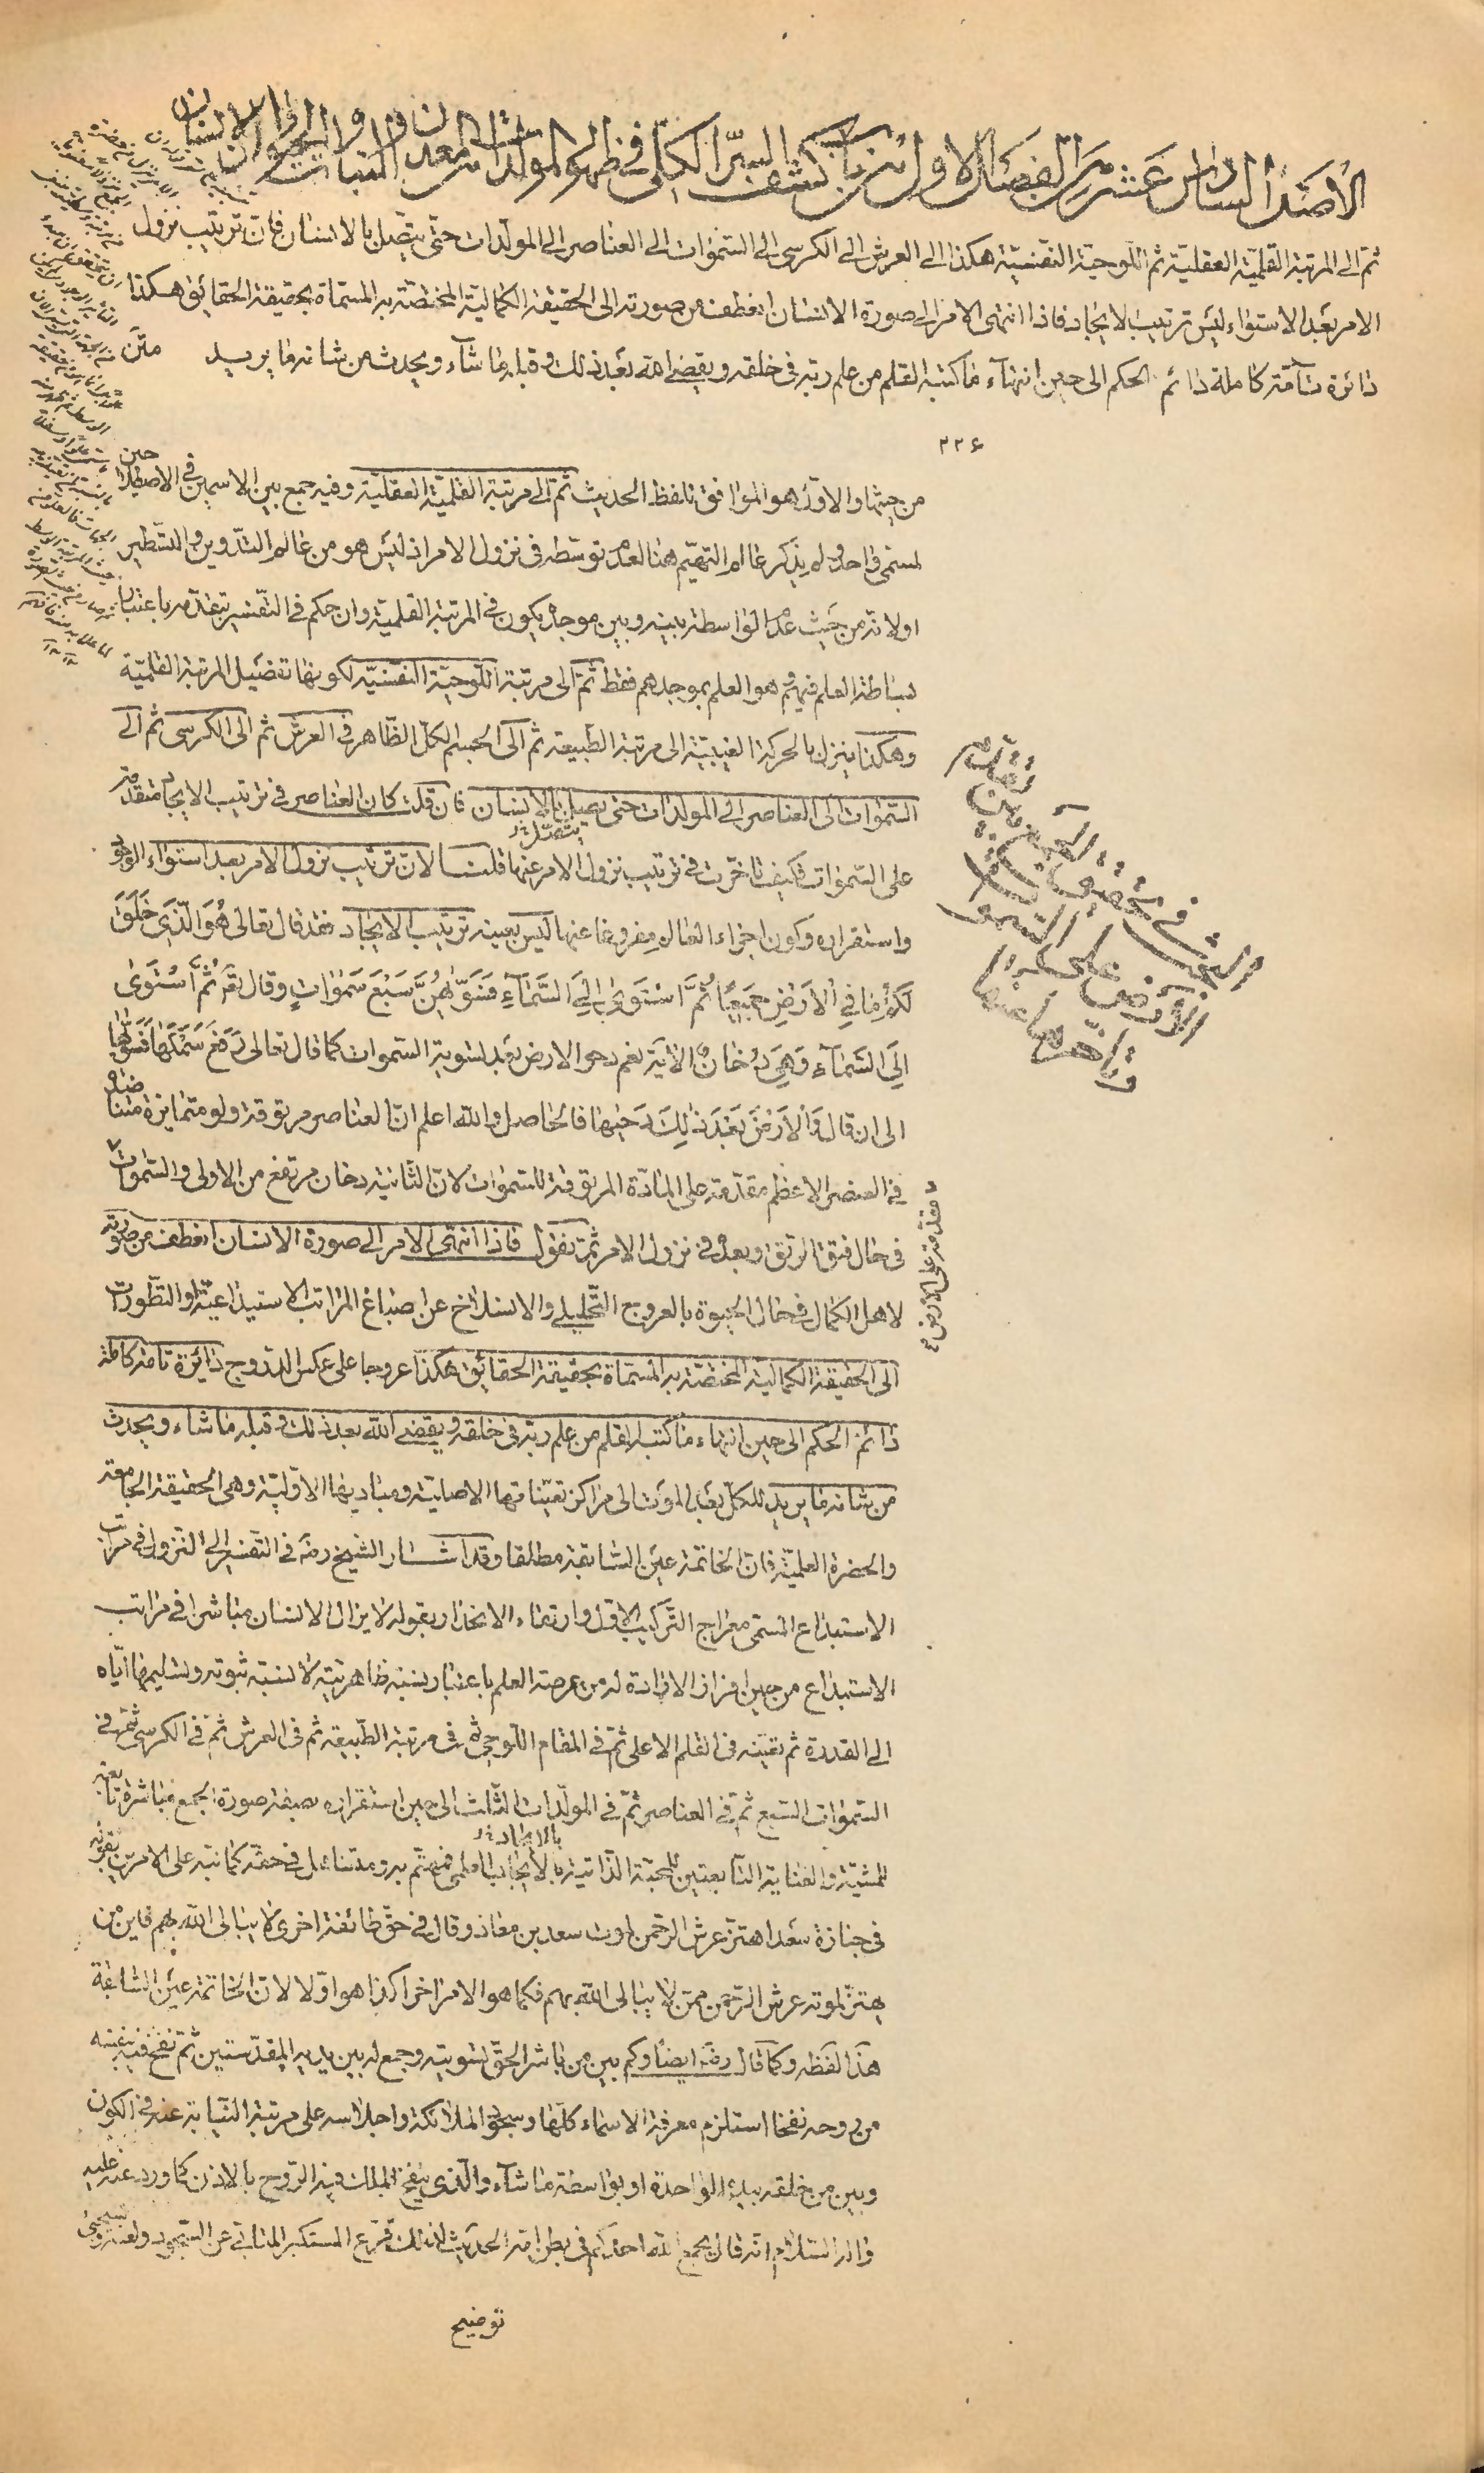 الأصل السادس عشر من الفصل الاول من باب كشف السر الكلى فى ظهور المولدات من المعدن والنبات والحيوان والانسان
ثم الى المرتبة القلمية العقلية ثم اللوحية النفسية هكذا الى العرش الى الكرسى الى السموات الى العناصر الى المولدات حتى يتصل بالانسان فان ترتيب نزول
الامر بعد الاستواء ليس ترتيب الايجاد فاذا انتهى الامر الى صورة الانسان انعطف من صورته الى الحقيقة الكمالية المختصة به المسماة بحقيقة الحقائق هكذا
دائرة تامة كاملة دائم الحكم الى حين انتهاء ما كتبه القلم من علم ربه فى خلقه ويقضى الله بعد ذلك وقبله ما شاء ويحدث من شانه ما يريد متن
٢٢۶
من حيثها والاول هو الموافق بلفظ الحديث ثم الى مرتبة القلمية العقلية وفيه جمع بين الاسمين فى الاصطلاحين
لمسمى واحد ولم يذكر عالم التهيم هنا لعدم توسطه فى نزول الامر اذ ليس هو من عالم التدوين والتسطير
اولانه من حيث عدم الواسطة بينه وبين موجده يكون فى المرتبة القلمية وان حكم فى التفسير بتقدمه باعتبار
بساطة العلم فيهم وهو العلم بموجدهم فقط ثم الى مرتبة اللوحية النفسية لكونها تفصيل المرتبة القلمية
وهكذا ينزل بالحركة الغيبية الى مرتبة الطبيعة ثم الى الجسم الكل الظاهر فى العرش ثم الى الكرسى ثم الى
السموات الى العناصر الى المولدات حتى يصل بالانسان فان قلت كان العناصر فى ترتيب الايجاد متقدمة
يتصل
على السموات فكيف تاخرت فى ترتيب نزول الامر عنها قلنا لان ترتيب نزول الامر بعد استواء الوجود
واستقراره وكون اجزاء العالم مفروغا عنها ليس بعينه ترتيب الايجاد فقد قال تعالى هُوَ الَّذى خَلَقَ
لَكُمْ ما فِي الْاَرْضِ جَميعًا ثُمَّ اسْتَوى اِلَى السَّماءِ فَسَوّيهُنَّ سَبْعَ سَمٰوات وقال تع ثُمَّ اسْتَوى
اِلَى السَّماءِ وَهِيَ دُخانٌ الاية نعم دحو الارض بعد تسوية السموات كما قال تعالى رَفَعَ سَمْكَها فَسَوّيها
الى ان قال وَالْاَرْضَ بَعْدَ ذلِكَ دَحيها فالحاصل والله اعلم ان العناصر مرتوقة ولو متمايزة
فى العنصر الاعظم مقدمة على المادة المرتوقة للسموات لان الثانية دخان مرتفع من الاولى والسموات
مقدمة على الارض
فى حال فتق الرتق وبعده فى نزول الامر ثم نقول فاذا انتهى الامر الى صورة الانسان انعطف من صورته
لاهل الكمال فى حال الحيوة بالعروج التحليلى والانسلاخ عن اصباغ المراتب الاستيداعية والتطورات
الى الحقيقة الكمالية المختصة به المسماة بحقيقة الحقائق هكذا عروجا على عكس الدروج دائرة تامة كاملة
دائم الحكم الى حين انتهاء ما كتبه القلم من علم ربه فى خلقه ويقضى الله بعد ذلك وقبله ما شاء ويحدث
من شانه ما يريد للكل بعد الموت الى مراكز تعيناتها الاصلية ومباديها الاولية وهى الحقيقة الجامعة
والحضرة العلمية فان الخاتمة عين السابقة مطلقا وقد اشار الشيخ رضه فى التفسير الى التنزل فى مراتب
الاستيداع المسمى معراج التركيب الاول وارتقاء الانحدار بقوله لا يزال الانسان مباشرا فى مراتب
الاستيداع من حين افراز الارادة له من عرصة العلم باعتبار نسبة ظاهريته لا نسبة ثبوته وتسليمها اياه
الى القدرة ثم تعينه فى القلم الاعلى ثم فى المقام اللوحى ثم فى مرتبة الطبيعة ثم فى العرش ثم فى الكرسى ثم فى
السموات السبع ثم فى العناصر ثم فى المولدات الثلث الى حين استقراره بصفة صورة الجمع مباشرة تابعة
للمشية والعناية التابعتين للمحبة الذاتية بالايجاب العلمى فمهتم به ومتساهل فى حقه كما نبه على الامرين بقوله
فى جنازة سعد اهتز عرش الرحمن لموت سعد بن معاذ وقال فى حق طائفة اخرى لا يبالى الله بهم فاين من
يهتز لموته عرش الرحمن ممن لا يبالى الله بهم فكما هو الامر اخرا كذا هو اولا لان الخاتمة عين السابقة
هذا لفظه وكما قال رضه ايضا وكم بين من باشر الحق تسويته وجمع له بين يديه المقدستين ثم نفخ فيه بنفسه
من روحه نفخا استلزم معرفة الاسماء كلها وسجود الملائكة واجلاسه على مرتبة النيابة عنه فى الكون
وبين من خلقه بيده الواحدة او بواسطة ما شاء والذى ينفخ الملك فيه الروح بالاذن كما ورد عنه عليه
واله السلام انه قال يجمع الله احدكم فى بطن امه الحديث لذلك قرع المستكبر المتابى عن السجود ولعنه
البحث فى تحقيق
الارض على السموات
وتاخرها عنها
توضيح